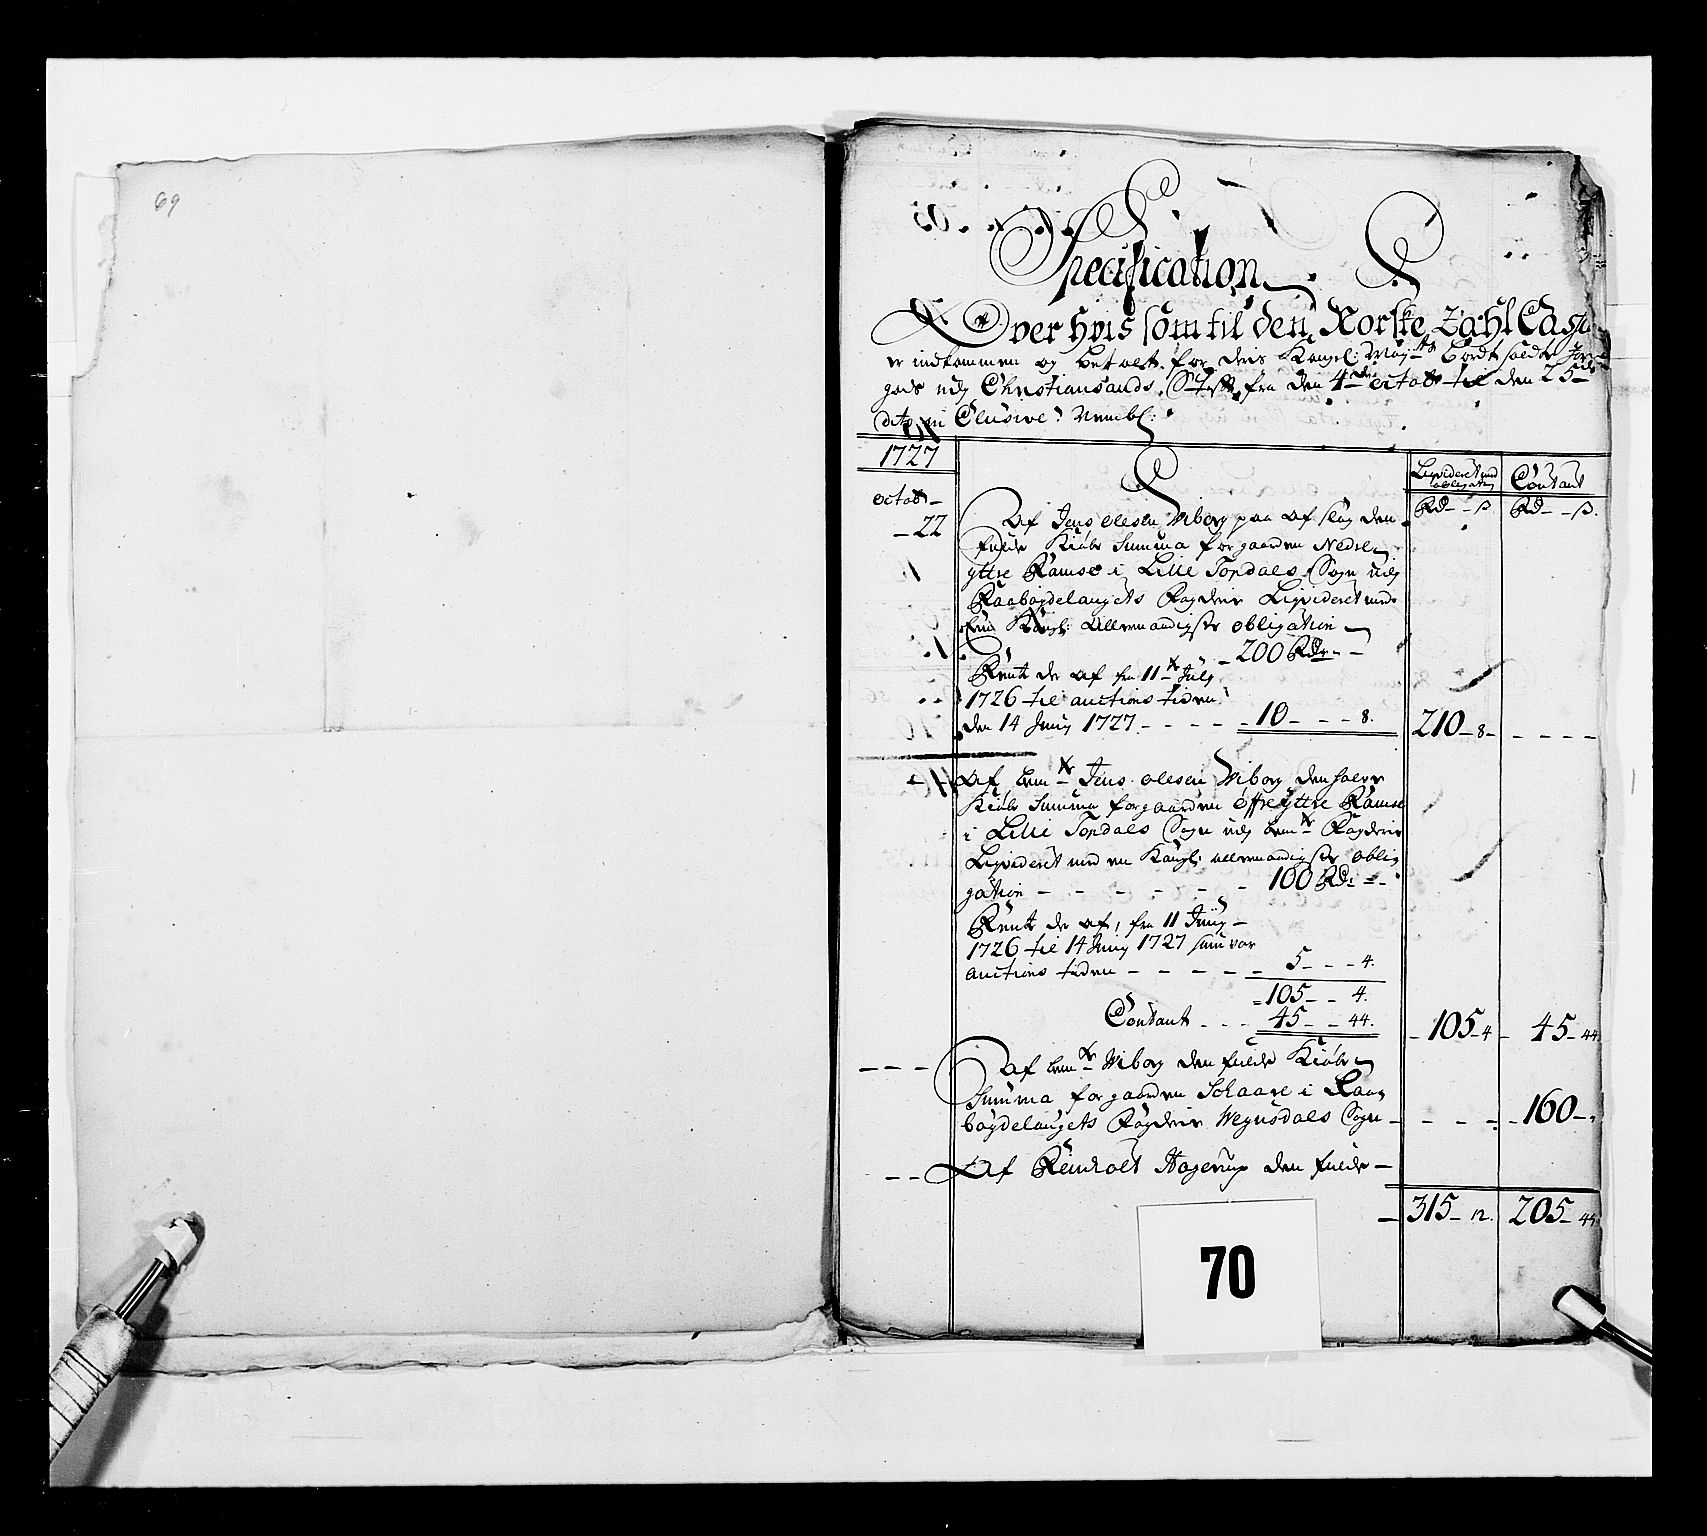 69
Specification
Over hvis som til den Norske Zahl Cassa
er indkommen og betalt for deris Kongel: Maÿ:ts bortsoldte Jorde
gods udj Christiansands Stift fra den 4de octobr til den 25de
dito in Clusive Nembl:
1727
Liqvideret med obligation
Contant
octobr
Rd - - ß
Rd - - ß.
22
Af Jens olesen Wiborg paa afslag den
fulde Kiøbe Summa for gaarden Nedre
yttre Ramse i Lille Topdals Sogn udj
Raabøgdelaugets Fogderie Liqvideret med
een Kongl: Allernaadigste obligation
200 Rdr
Rente der af fra 11te Julÿ
1726 til auctions tiden
den 14 Junÿ 1727 - - - - 10 - - - 8.
210 - 8 -
Af bemte Jens olesen Wiborg den halve
Kiøbe Summa for gaarden øffre yttre Ramse
i Lille Topdals Sogn udj bemte Fogderie
Liqvideret med en Kongl: allernaadigste obli
gation - - - - - - 100 Rdr
Rente der af, fra 11 Junÿ
1726 til 14 Junÿ 1727 som var
auctions tiden - - - - - 5 - - - 4.
105 - - 4.
Contant - - - 45 - - 44.
105 - 4
45 - 44
Af bemte Wiborg den fulde Kiøbe
Summa for gaarden Schaare i Raa
bøgdelaugets Fogderie Wegusdals Sogn
160 -
Af Reinholt Hagerup den fulde
315 - 12.
205 - 44
70